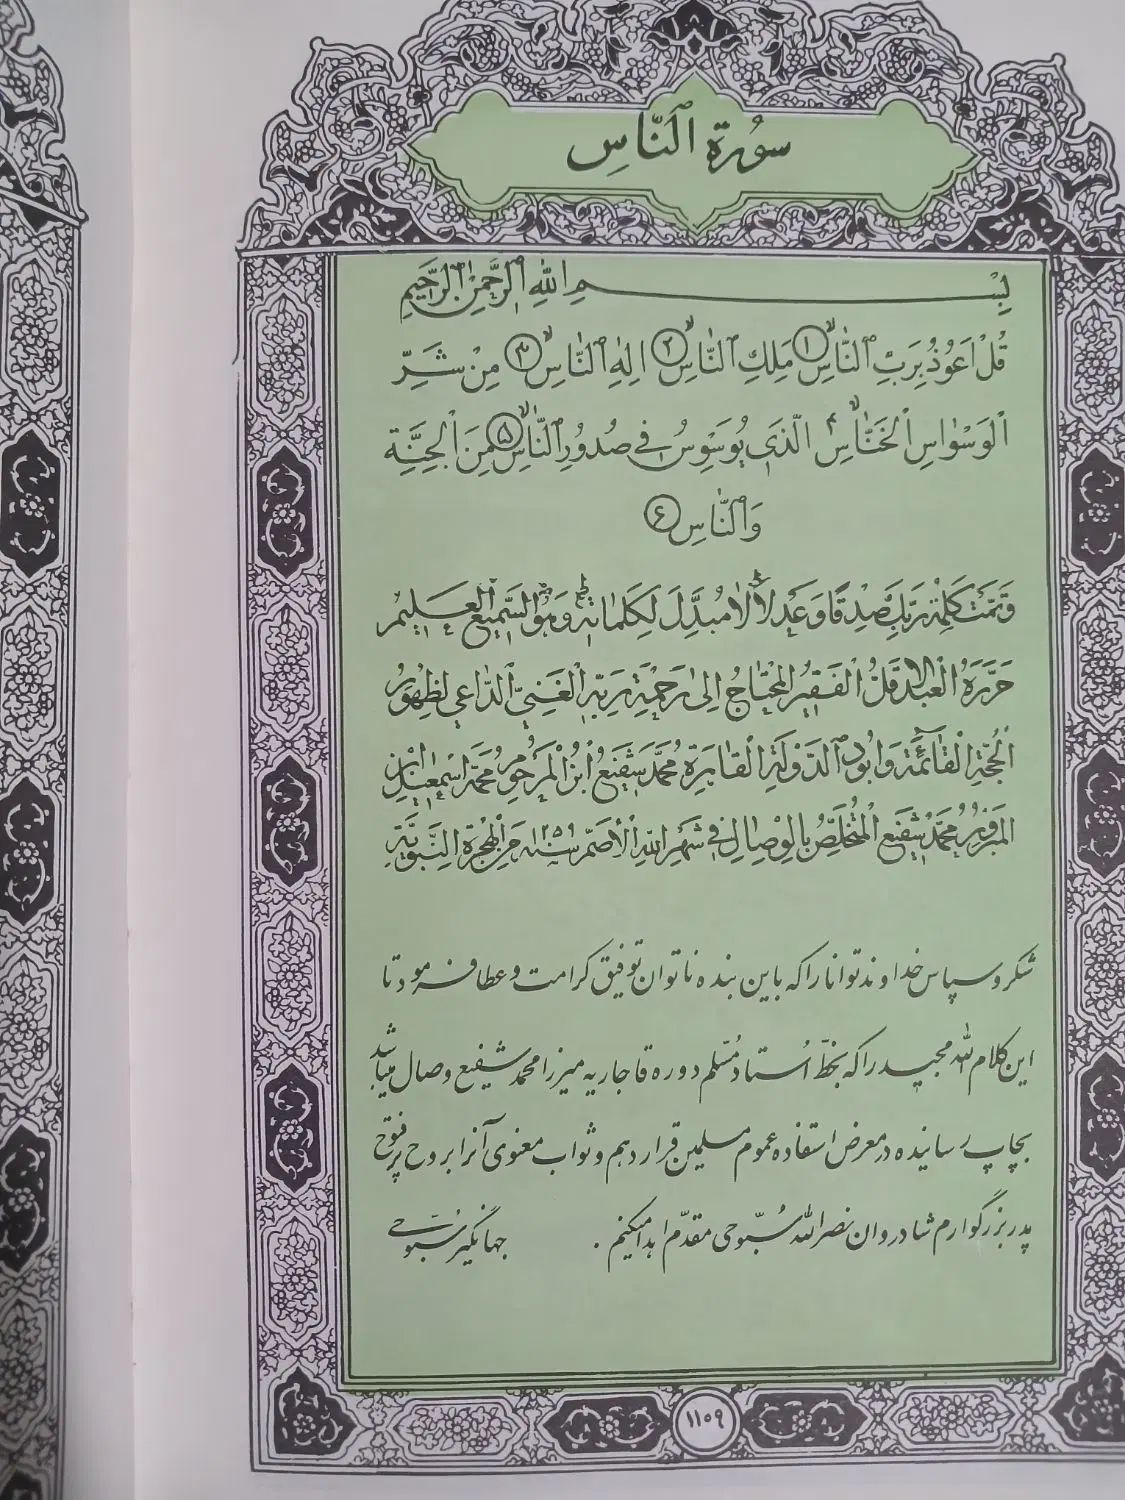 سُورة اَلنّاسِ
بِسْمِ اللهِ الرَّحْمٰنِ الرَّحيمِ
قُلْ اَعُوذُ بِرَبِّ النّاسِ ۱ مَلِكِ النّاسِ ۲ اِلٰهِ النّاسِ ۳ مِنْ شَرِّ
الْوَسْواسِ الْخَنّاسِ ۴ الَّذى يُوَسْوِسُ فى صُدُورِ النّاسِ ۵ مِنَ الْجِنَّةِ
وَالنّاسِ ۶
وَتَمَّتْ كَلِمَةُ رَبِّكَ صِدْقًا وَعَدْلًا لا مُبَدِّلَ لِكَلِماتِهِ وَهُوَ السَّميعُ الْعَليمُ
حَرَّرَهُ الْعَبْدُ الْاَقَلُّ الْفَقيرُ الْمُحْتاجُ اِلىٰ رَحْمَةِ رَبِّهِ الْغَنِيِّ الدّاعي لِظُهُورِ
الْحُجَّةِ الْقائِمَةِ وَ الدَّوْلَةِ الْقاهِرَةِ مُحَمَّد شَفيعُ ابْنُ الْمَرْحُومِ مُحَمَّد اِسْمٰعيلَ ابْنِ
مُحَمَّد شَفيع الْمُتَخَلِّصُ بِالْوِصالِ فى شَهْرِ اللهِ الْاَصَمِّ سنه ۱۲۵۹ مِنَ الْهِجْرَةِ النَّبَوِيَّةِ
شکر و سپاس خداوند توانا را که باین بنده ناتوان توفیق کرامت و عطا فرمود تا
این کلام الله مجید را که بخطّ اُستاد مُسلّم دوره قاجاریه میرزا محمد شفیع وصال میباشد
بچاپ رسانیده در معرض استفاده عموم مسلمین قرار دهم و ثواب معنوی آنرا بروح پرفتوح
پدر بزرگوارم شادروان نصرالله سُبّوحی مقدّم اهدا میکنم . جهانگیر سُبّوحی
۱۱۵۹